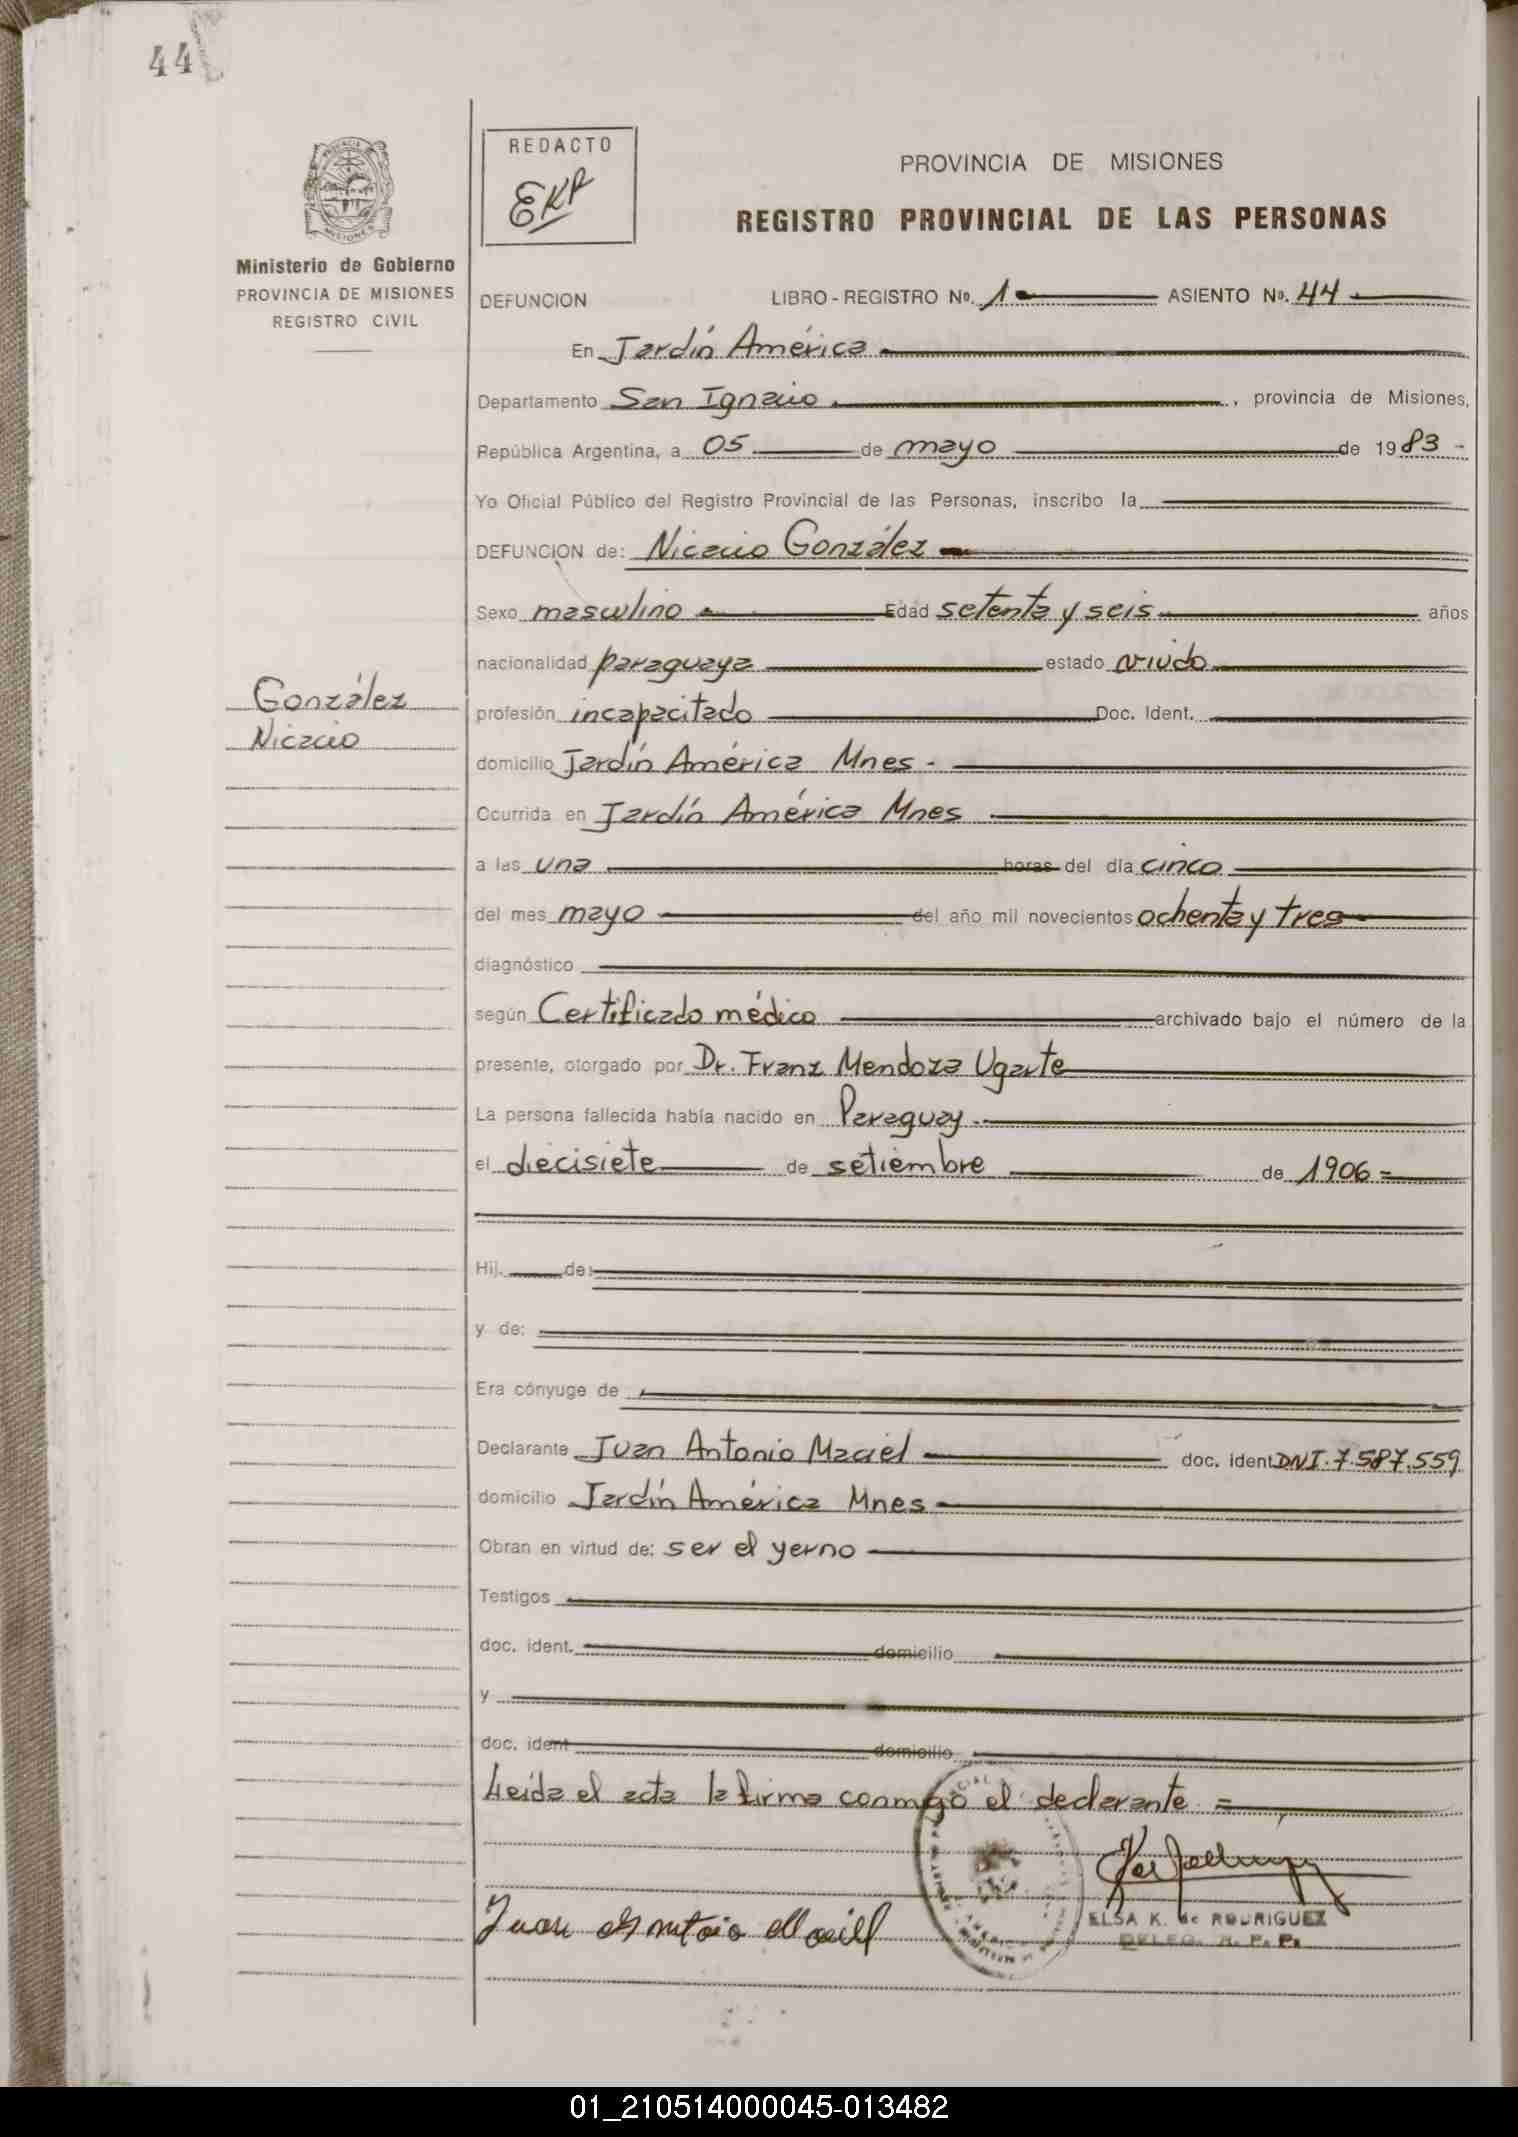 44
REDACTO
EKR
PROVINCIA DE MISIONES
REGISTRO PROVINCIAL DE LAS PERSONAS
Ministerio de Gobierno
PROVINCIA DE MISIONES
REGISTRO CIVIL
DEFUNCION LIBRO - REGISTRO Nº. 1 ASIENTO Nº. 44
En Jardín América
Departamento San Ignacio, provincia de Misiones,
República Argentina, a 05 de mayo de 1983 -
Yo Oficial Público del Registro Provincial de las Personas, inscribo la
DEFUNCION de: Nicacio González
Sexo masculino Edad setenta y seis años
nacionalidad paraguaya estado viudo
González
Nicacio
profesión incapacitado Doc. Ident.
domicilio Jardín América Mnes -
Ocurrida en Jardín América Mnes
a las una horas del día cinco
del mes mayo del año mil novecientos ochenta y tres
diagnóstico
según Certificado médico archivado bajo el número de la
presente, otorgado por Dr. Franz Mendoza Ugarte
La persona fallecida había nacido en Paraguay
el diecisiete de setiembre de 1906 =
Hij. de:
y de:
Era cónyuge de
Declarante Juan Antonio Maciel doc. ident DNI. 7.587.559
domicilio Jardín América Mnes
Obran en virtud de: ser el yerno
Testigos
doc. ident. domicilio
y
doc. ident domicilio
Leída el acta la firma conmigo el declarante =
ELSA K. de RODRIGUEZ
DELEG. R. P. P.
01_210514000045-013482